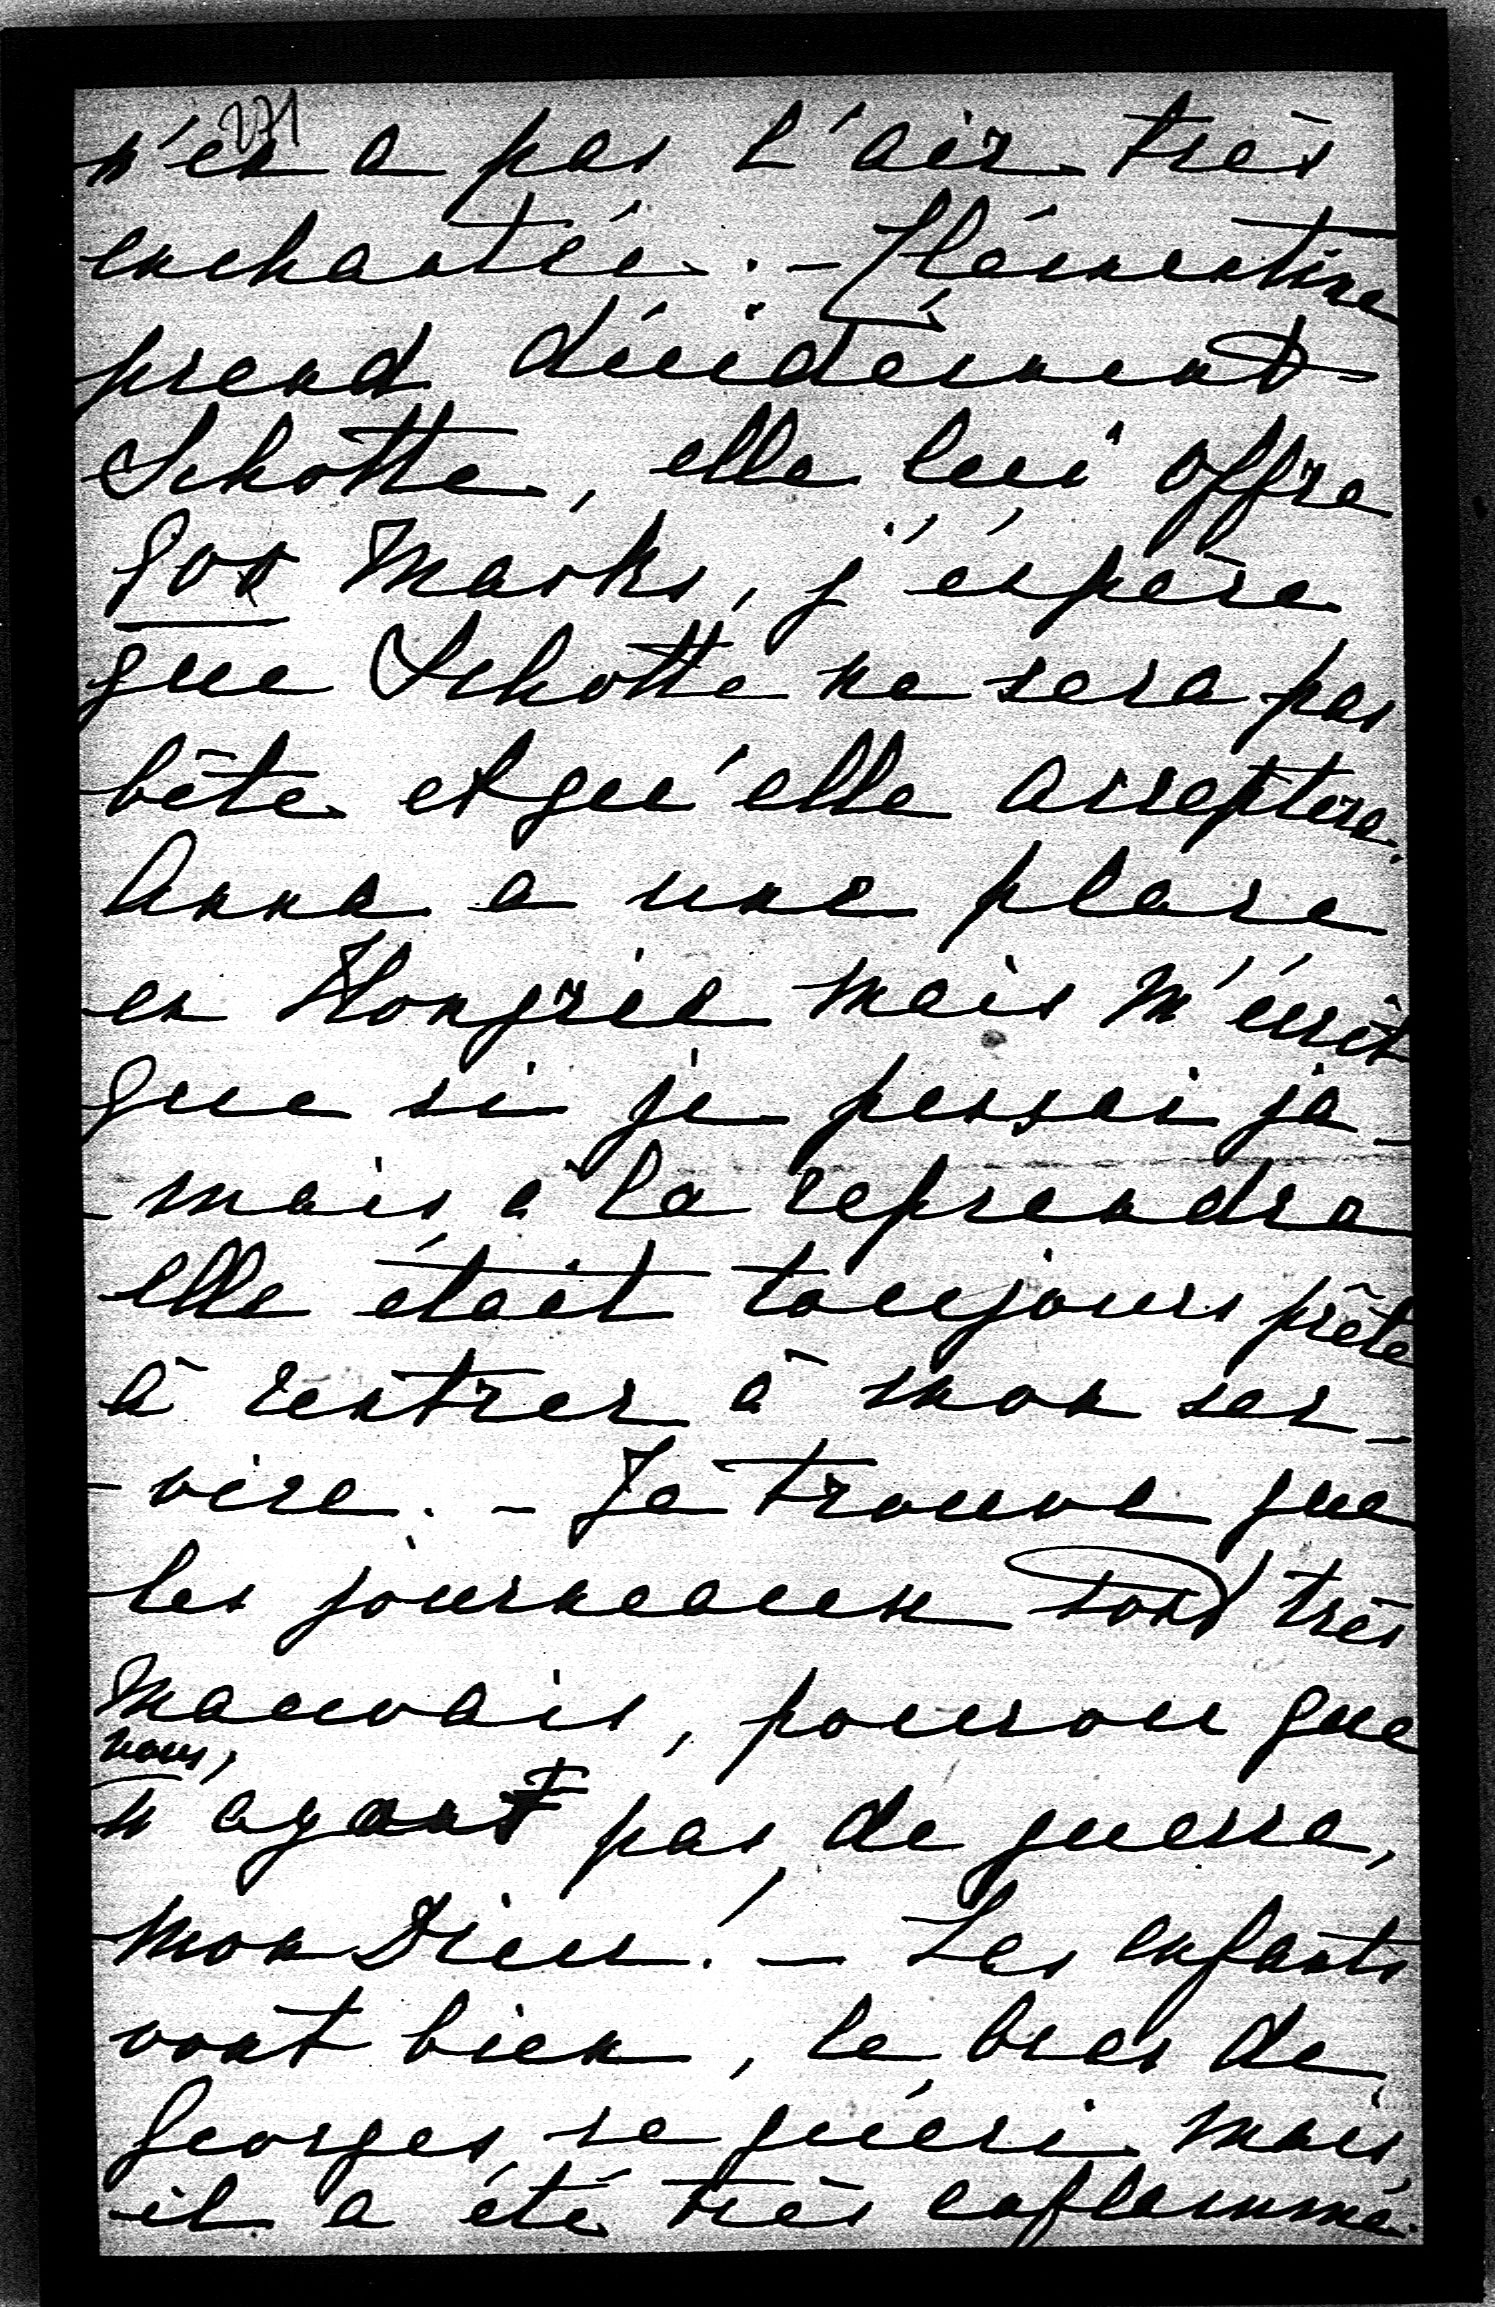 271
n'en a pas l'air très
enchantée. - Clémentine
prend décidément
Schotte, elle lui offre
900 Marks, j'espère
que Schotte ne sera pas
bête et qu'elle acceptera.
Anna a une place
en Hongrie mais m'écrit
que si je pensai ja-
-mais à la reprendre
elle était toujours prête
à rentrer à mon ser-
-vice. - Je trouve que
les journeaux sont très
mauvais, pourvu que
nous,
n'ayont pas de guerre,
mon Dieu! - Les enfants
vont bien, le bras de
Georges se guéri mais
il a été très enflammé.